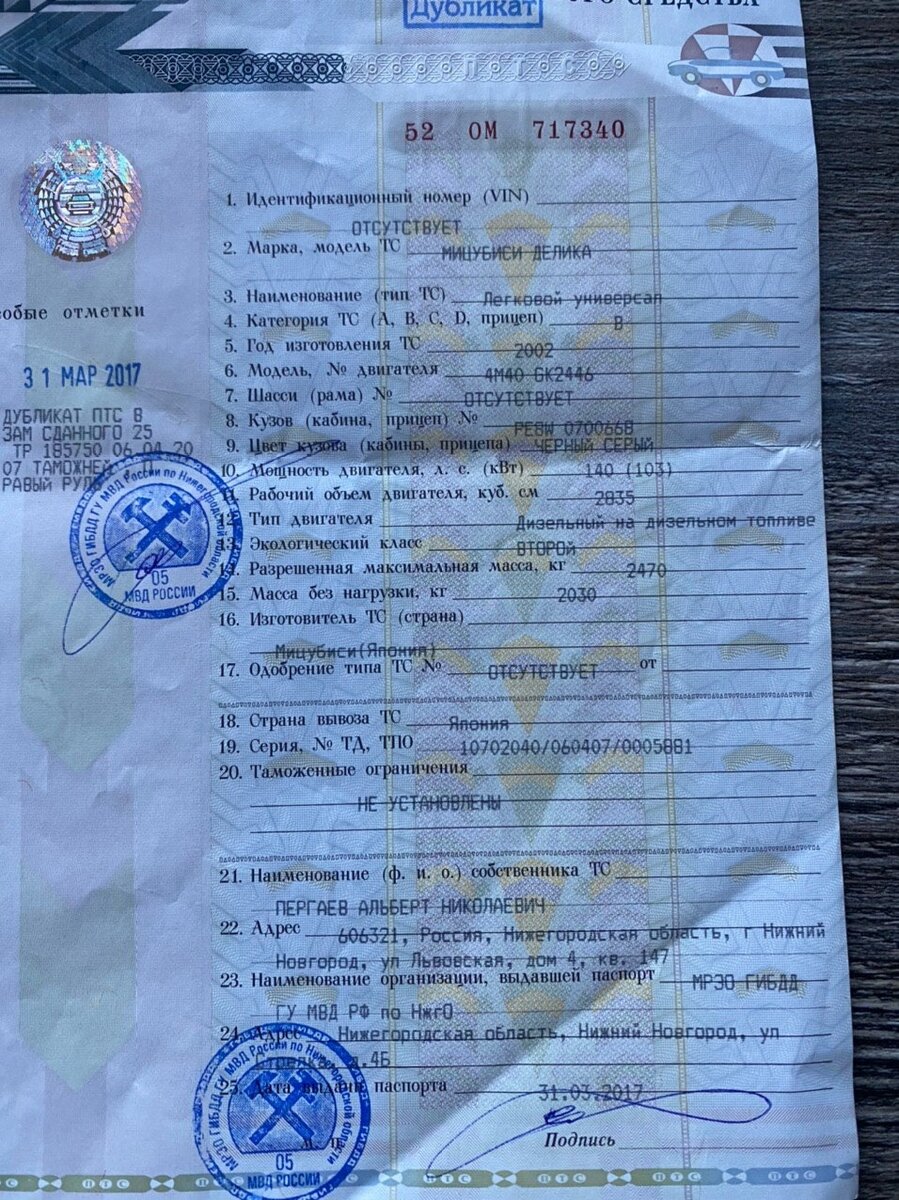 Дубликат
ПТС
52 ОМ 717340
1. Идентификационный номер (VIN)
ОТСУТСТВУЕТ
2. Марка, модель ТС МИЦУБИСИ ДЕЛИКА
3. Наименование (тип ТС) Легковой универсал
4. Категория ТС (А, В, С, D, прицеп) В
5. Год изготовления ТС 2002
6. Модель, № двигателя 4М40 GK2446
7. Шасси (рама) № ОТСУТСТВУЕТ
8. Кузов (кабина, прицеп) № PE8W 0700668
9. Цвет кузова (кабины, прицепа) ЧЕРНЫЙ СЕРЫЙ
10. Мощность двигателя, л. с. (кВт) 140 (103)
11. Рабочий объем двигателя, куб. см 2835
12. Тип двигателя Дизельный на дизельном топливе
13. Экологический класс ВТОРОЙ
14. Разрешенная максимальная масса, кг 2470
15. Масса без нагрузки, кг 2030
16. Изготовитель ТС (страна)
Мицубиси(Япония)
17. Одобрение типа ТС № ОТСУТСТВУЕТ от
18. Страна вывоза ТС Япония
19. Серия, № ТД, ТПО 10702040/060407/0005881
20. Таможенные ограничения
НЕ УСТАНОВЛЕНЫ
21. Наименование (ф. и. о.) собственника ТС
ПЕРГАЕВ АЛЬБЕРТ НИКОЛАЕВИЧ
22. Адрес 606321, Россия, Нижегородская область, г Нижний
Новгород, ул Львовская, дом 4, кв. 147
23. Наименование организации, выдавшей паспорт МРЭО ГИБДД
ГУ МВД РФ по НжгО
24. Адрес Нижегородская область, Нижний Новгород, ул
д.4Б
25. Дата выдачи паспорта 31.03.2017
Подпись
М. П.
собые отметки
31 МАР 2017
ДУБЛИКАТ ПТС В
ЗАМ СДАННОГО 25
ТР 185750 06.04.20
07 ТАМОЖНЕЙ
РАВЫЙ РУЛЬ
МРЭО ГИБДД ГУ МВД России по Нижегородской области
05
МВД РОССИИ
МРЭО ГИБДД ГУ МВД России по Нижегородской области
05
МВД РОССИИ
ПТС ПТС ПТС ПТС ПТС